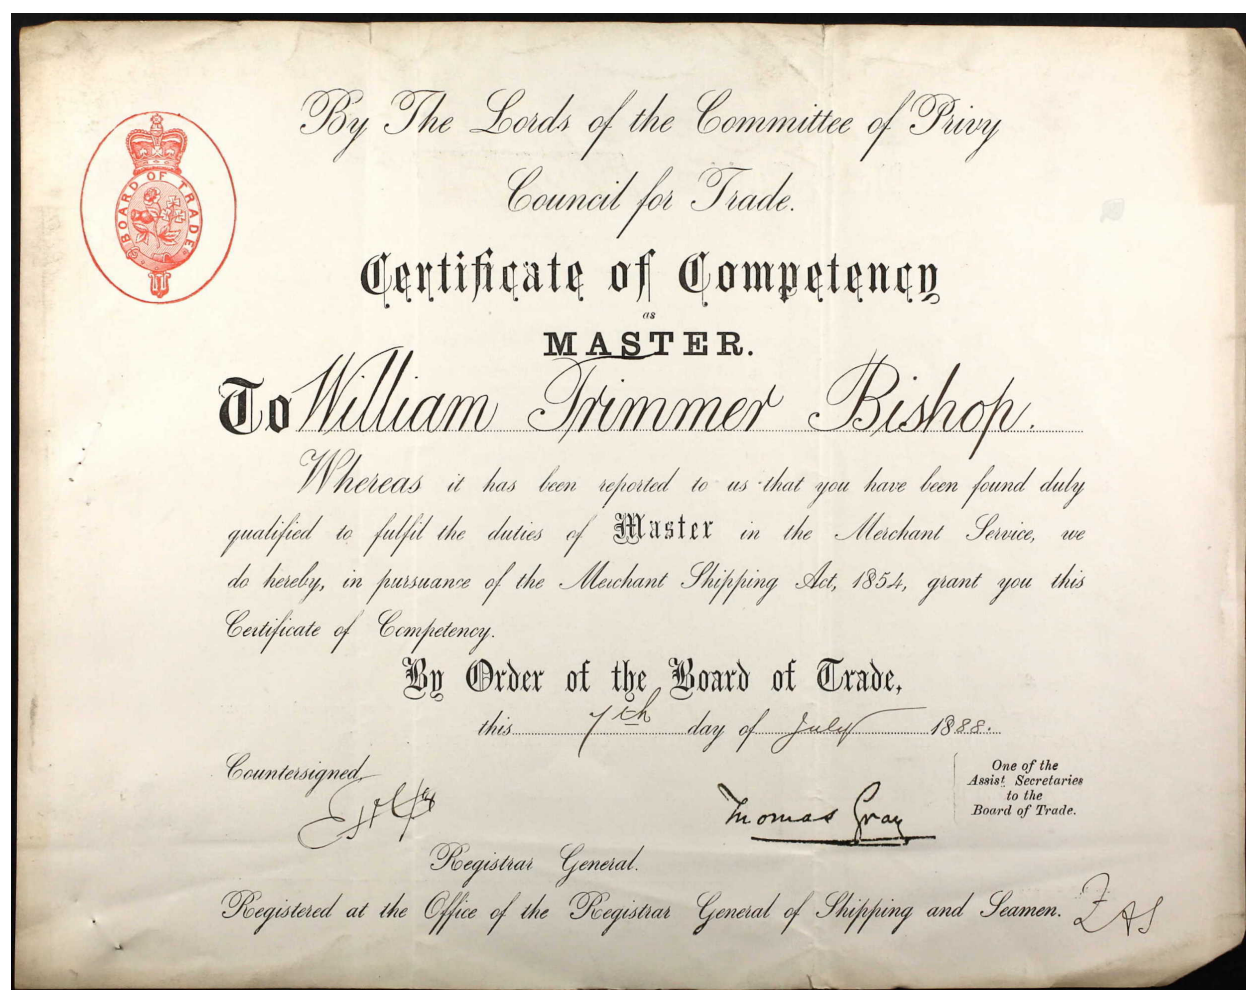 By The Lords of the Committee of Privy
Council for Trade.
BOARD OF TRADE
Certificate of Competency
as
MASTER.
To William Trimmer Bishop.
Whereas it has been reported to us that you have been found duly
qualified to fulfil the duties of Master in the Merchant Service, we
do hereby, in pursuance of the Merchant Shipping Act, 1854, grant you this
Certificate of Competency.
By Order of the Board of Trade,
this 7th day of July 1888.
Countersigned
Thomas Gray
One of the
Assist. Secretaries
to the
Board of Trade.
Registrar General.
Registered at the Office of the Registrar General of Shipping and Seamen.